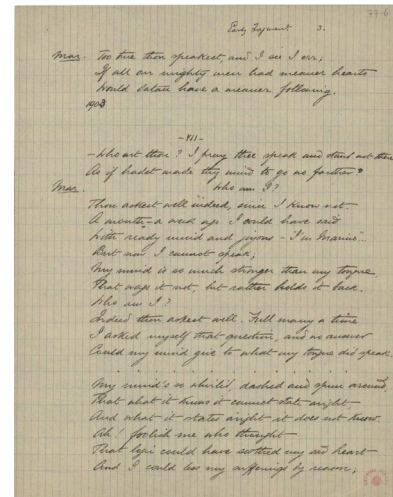 77-6
Early Fragment 3.
Mar. Too true thou speakest, and I see I err;
If all our mighty were had meaner hearts
Would Satan have a meaner following.
1903
-VII-
-Who art thou? I pray thee speak and stand not there
As if hadst made thy mind to go no farther?
Mar. Who am I?
Thou askest well indeed, since I know not
A month - a week ago I could have said
With ready mind and joyous - "I'm Marino".
But now I cannot speak;
My mind is so much stronger than my tongue
That wags it not, but rather holds it back.
Who am I?
Indeed thou askest well. Full many a time
I asked myself that question, and no answer
Could my mind give to what my tongue did speak.
. . . . . . . . . . . .
My mind's so whirl'd, dashed and spun around,
That what it knows it cannot state aright
And what it states aright it does not know.
Ah! foolish me who thought
That logic could have soothed my sad heart
And I could less my sufferings by reason;